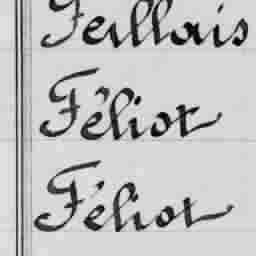 Feillais
Féliot
Féliot